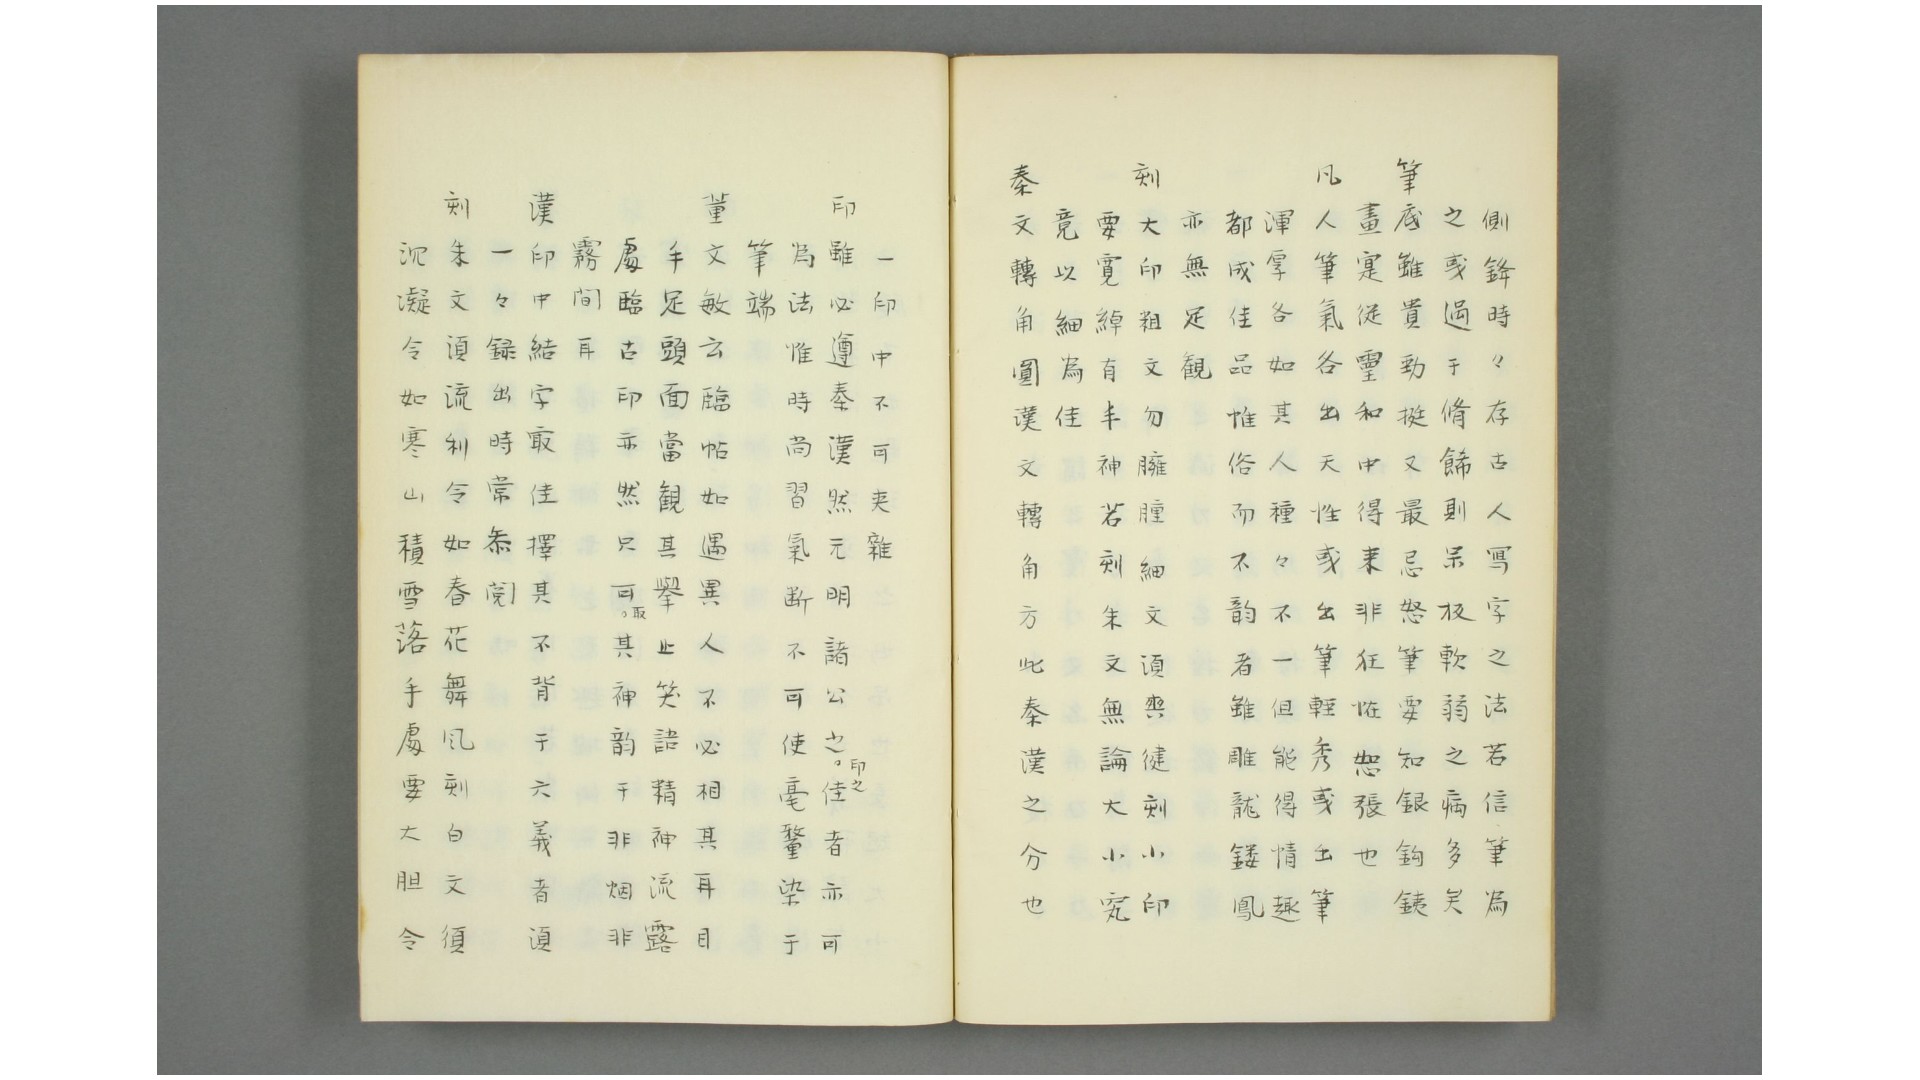 側鋒時々存古人寫字之法若信筆為
之或過于脩餙則呆板軟弱之病多矣
筆底雖貴勁挺又最忌怒筆要知銀鈎銕
畫寔従靈和中得来非狂恠恕張也
凡人筆氣各出天性或出筆輕秀或出筆
渾厚各如其人種々不一但能得情趣
都成佳品惟俗而不韵者雖雕龍鏤鳳
亦無足観
刻大印粗文勿臃腫細文湏爽徤刻小印
要寛綽有丰神若刻朱文無論大小究
竟以細為佳
秦文轉角圓漢文轉角方此秦漢之分也
一印中不可夹雜
印雖必遵秦漢然元明諸公之印之佳者亦可
為法惟時尚習氣断不可使毫釐染于
筆端
董文敏云臨帖如遇異人不必相其耳目
手足頭面當観其舉止笑語精神流露
處臨古印亦然只可取其神韵于非烟非
霧間耳
漢印中結字取佳擇其不背于六義者湏
一々録出時常叅閲
刻朱文湏流利令如春花舞風刻白文須
沈凝令如寒山積雪落手處要大胆令